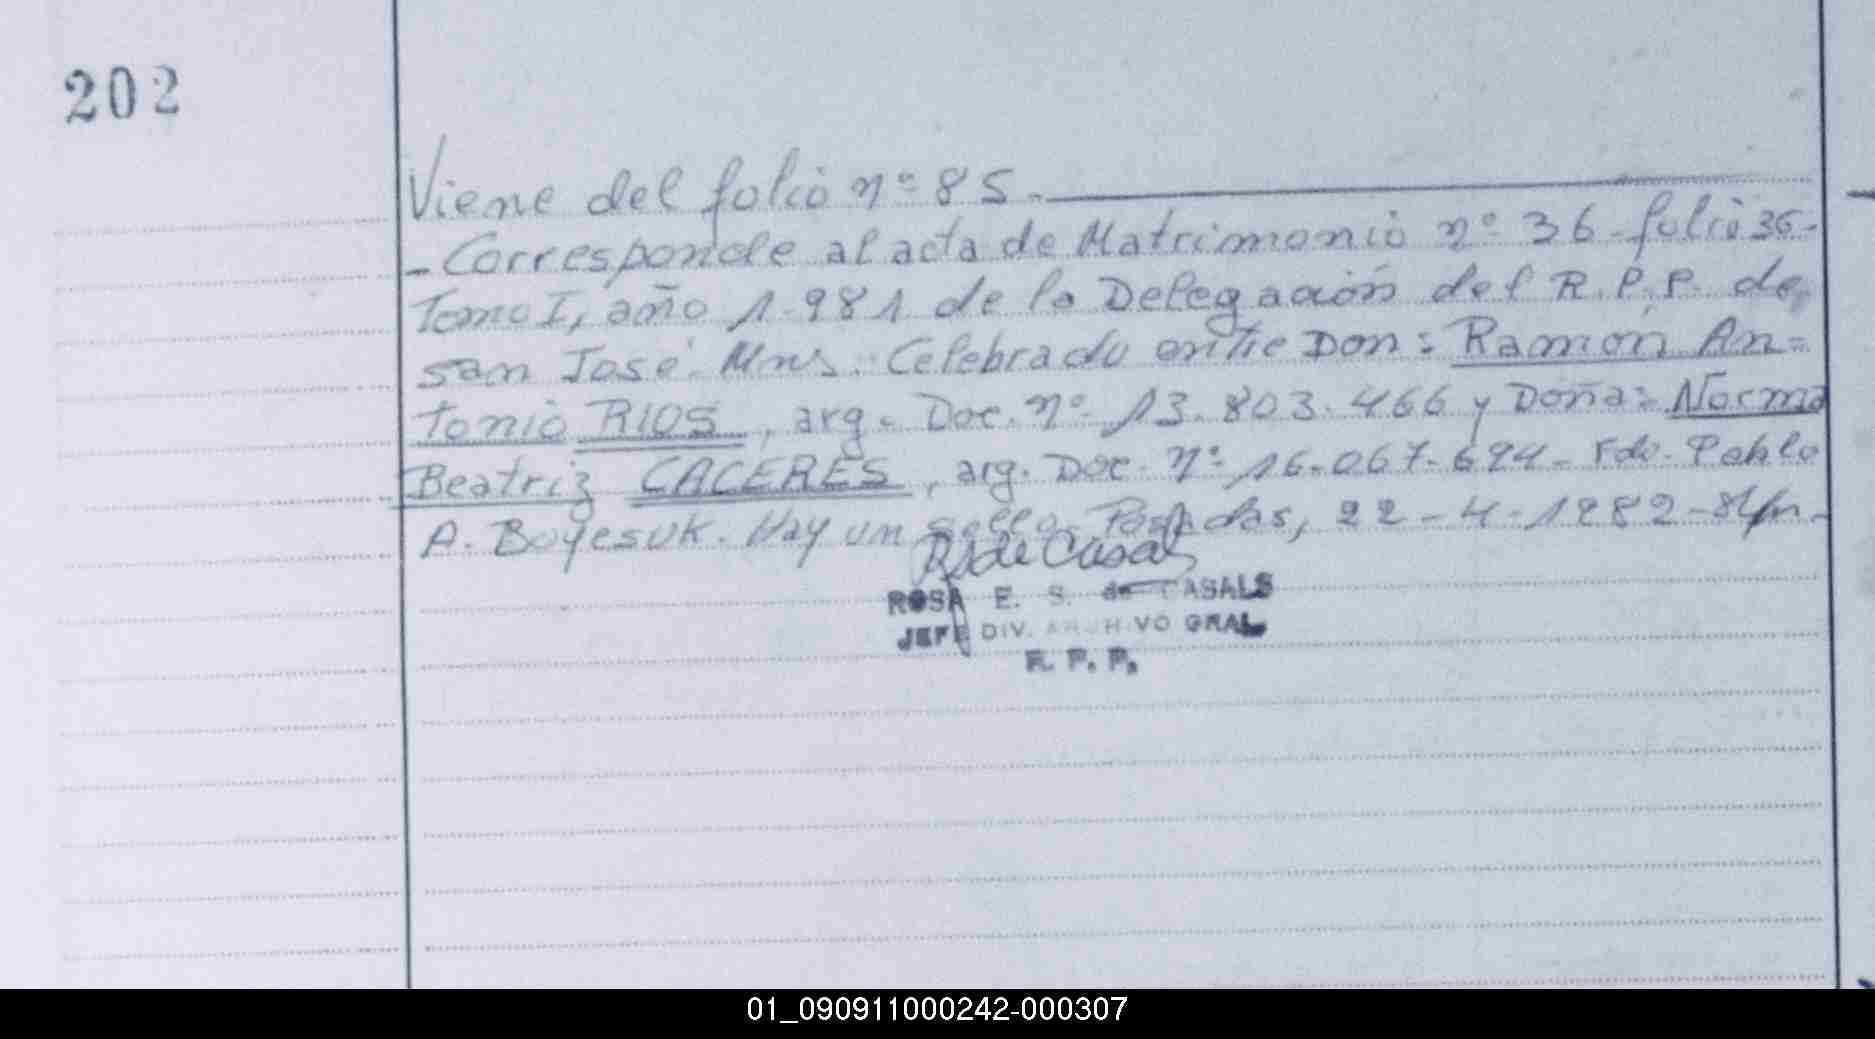 202
Viene del folio nº 85.
- Corresponde al acta de Matrimonio nº 36 - folio 36 -
Tomo I, año 1.981 de la Delegación del R.P.P. de
San José. Mns. Celebrado entre Don: Ramón An=
tonio RIOS, arg. Doc. nº 13.803.466 y Doña: Norma
Beatriz CACERES, arg. Doc. nº 16.067.694 - Fdo. Pablo
A. Boyesuk. Hay un sello. Posadas, 22-4-1982-
R S de Casals
ROSA E. S. de CASALS
JEFE DIV. ARCHIVO GRAL.
R. P. P.
01_090911000242-000307